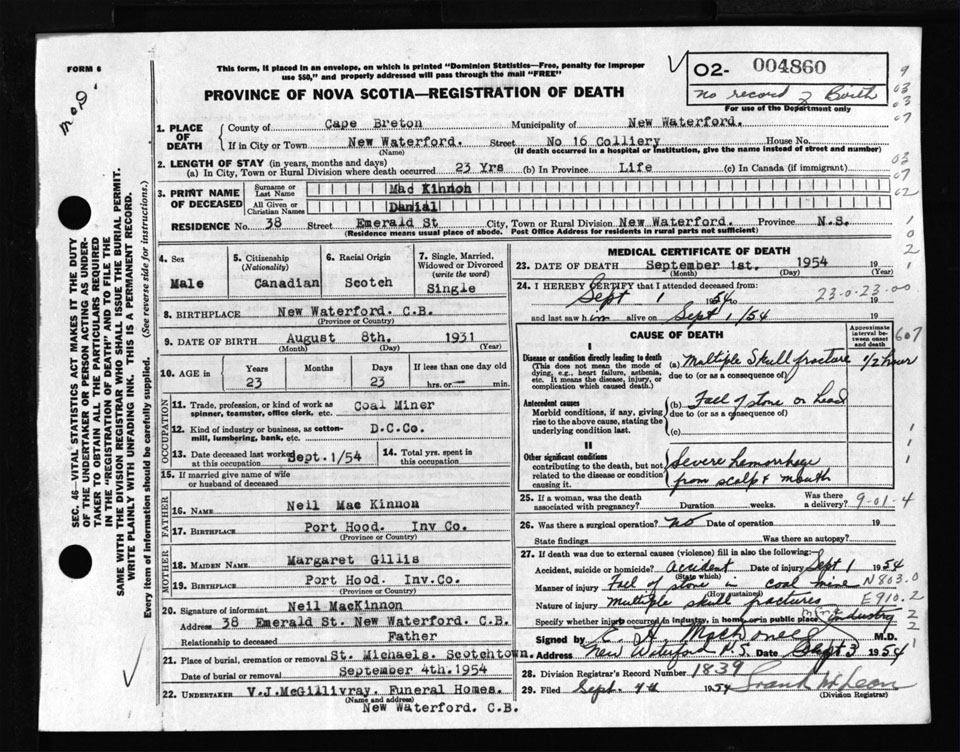 FORM 6
This form, if placed in an envelope, on which is printed "Dominion Statistics—Free, penalty for improper
use $50," and properly addressed will pass through the mail "FREE"
PROVINCE OF NOVA SCOTIA—REGISTRATION OF DEATH
O2- 004860
no record of Birth
For use of the Department only
SEC. 46—VITAL STATISTICS ACT MAKES IT THE DUTY
OF THE UNDERTAKER OR PERSON ACTING AS UNDER-
TAKER TO OBTAIN ALL THE PARTICULARS REQUIRED
IN THE "REGISTRATION OF DEATH" AND TO FILE THE
SAME WITH THE DIVISION REGISTRAR WHO SHALL ISSUE THE BURIAL PERMIT.
WRITE PLAINLY WITH UNFADING INK. THIS IS A PERMANENT RECORD.
Every item of information should be carefully supplied. (See reverse side for instructions.)
1. PLACE OF DEATH
County of Cape Breton Municipality of New Waterford.
If in City or Town New Waterford. Street No 16 Colliery House No.
(Name) (If death occurred in a hospital or institution, give the name instead of street and number)
2. LENGTH OF STAY (in years, months and days)
(a) In City, Town or Rural Division where death occurred 23 Yrs (b) In Province Life (c) In Canada (if immigrant)
3. PRINT NAME OF DECEASED
Surname or Last Name Mac Kinnon
All Given or Christian Names Danial
RESIDENCE No. 38 Street Emerald St City, Town or Rural Division New Waterford. Province N.S.
(Residence means usual place of abode. Post Office Address for residents in rural parts not sufficient)
4. Sex Male
5. Citizenship (Nationality) Canadian
6. Racial Origin Scotch
7. Single, Married, Widowed or Divorced (write the word) Single
8. BIRTHPLACE New Waterford. C.B.
(Province or Country)
9. DATE OF BIRTH August 8th. 1931
(Month) (Day) (Year)
10. AGE in Years 23 Months Days 23 If less than one day old hrs. or min.
OCCUPATION
11. Trade, profession, or kind of work as spinner, teamster, office clerk, etc. Coal Miner
12. Kind of industry or business, as cotton-mill, lumbering, bank, etc. D.C.Co.
13. Date deceased last worked at this occupation Sept. 1/54
14. Total yrs. spent in this occupation
15. If married give name of wife or husband of deceased
FATHER
16. NAME Neil Mac Kinnon
17. BIRTHPLACE Port Hood. Inv Co.
(Province or Country)
MOTHER
18. MAIDEN NAME Margaret Gillis
19. BIRTHPLACE Port Hood. Inv.Co.
(Province or Country)
20. Signature of informant Neil MacKinnon
Address 38 Emerald St. New Waterford. C.B.
Relationship to deceased Father
21. Place of burial, cremation or removal St. Michaels. Scotchtown.
Date of burial or removal September 4th.1954
22. UNDERTAKER V.J.McGillivray. Funeral Homes.
(Name and address)
New Waterford. C.B.
MEDICAL CERTIFICATE OF DEATH
23. DATE OF DEATH September 1st. 1954 19
(Month) (Day) (Year)
24. I HEREBY CERTIFY that I attended deceased from:
Sept 1 1954 to 19
23-0-23-00
and last saw him alive on Sept 1/54 19
CAUSE OF DEATH
Approximate interval between onset and death
607
I
Disease or condition directly leading to death
(This does not mean the mode of dying, e.g., heart failure, asthenia, etc. It means the disease, injury, or complication which caused death.)
(a) Multiple Skull fracture 1/2 hour
due to (or as a consequence of)
Antecedent causes
Morbid conditions, if any, giving rise to the above cause, stating the underlying condition last.
(b) Fall of stone on head
due to (or as a consequence of)
(c)
II
Other significant conditions
contributing to the death, but not related to the disease or condition causing it.
Severe hemorrhage
from scalp & mouth
25. If a woman, was the death associated with pregnancy? Duration weeks. Was there a delivery?
9-01-4
26. Was there surgical operation? no Date of operation 19
State findings Was there an autopsy?
27. If death was due to external causes (violence) fill in also the following:
Accident, suicide or homicide? accident Date of injury Sept 1 1954
(State which)
Manner of injury Fall of stone in coal mine N803.0
(How sustained)
Nature of injury multiple skull fractures E910.2
Specify whether injury occurred in industry, in home, or in public place Industry
Signed by M.D.
Address New Waterford N.S. Date Sept 3 1954
28. Division Registrar's Record Number 1839
29. Filed Sept. 4th 1954
(Division Registrar)